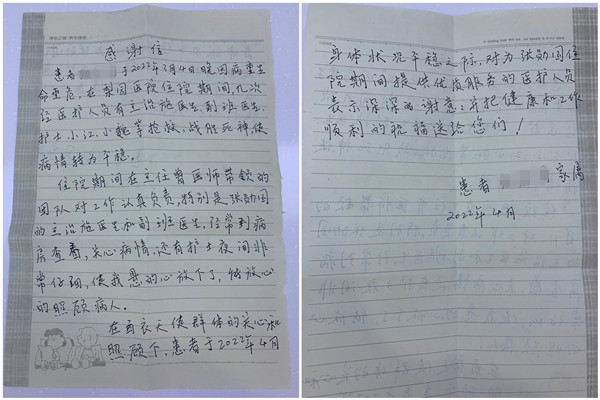 感谢信
患者 于2022年3月4日晚因病重生
命垂危,在梨园医院住院期间,几次
经医护人员有主治施医生、副班医生、
护士小江、小魏等抢救,战胜死神,使
病情转为平稳。
住院期间在主任曾医师带领的
团队对工作认真负责,特别是张勋国
的主治施医生和副班医生,经常到病
房查看,关心病情,还有护士夜间非
常仔细,使我悬的心放下了,能放心
的照顾病人。
在白衣天使群体的关心和
照顾下,患者于2022年4月
身体状况平稳之际,对为张勋国住
院期间提供优质服务的医护人员
表示深深的谢意;并把健康和工作
顺利的祝福送给您们!
患者 家属
2022年4月